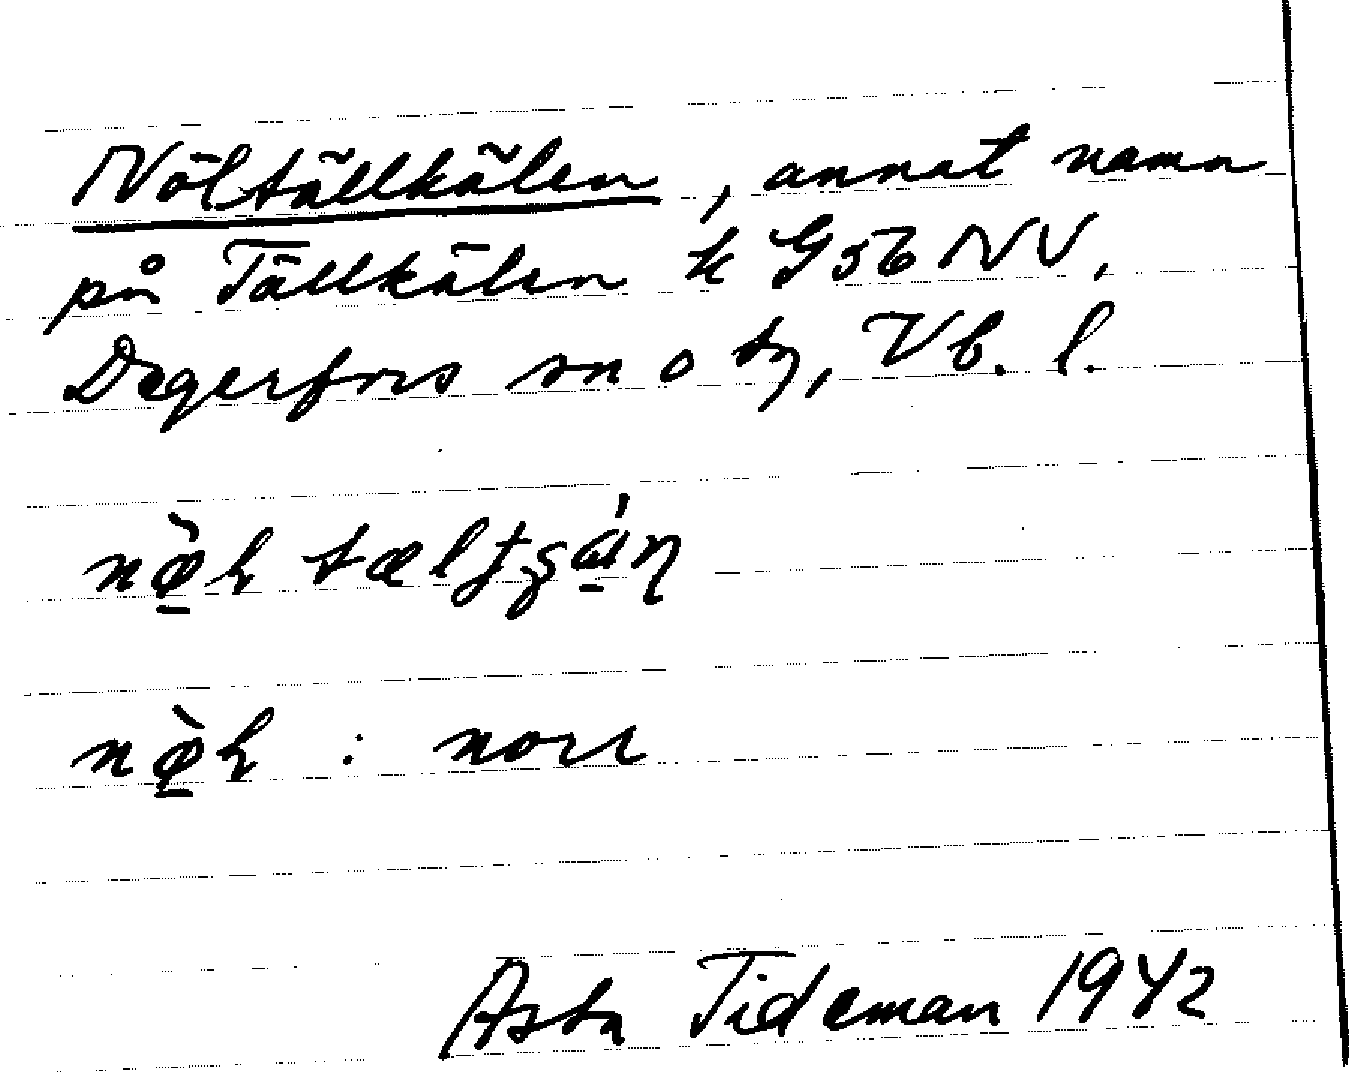 Nöltällkälen, annat namn
på Tällkälen k G56 NV,
Degerfors sn o tg, Vb. l.
: norr
Asta Tideman 1942